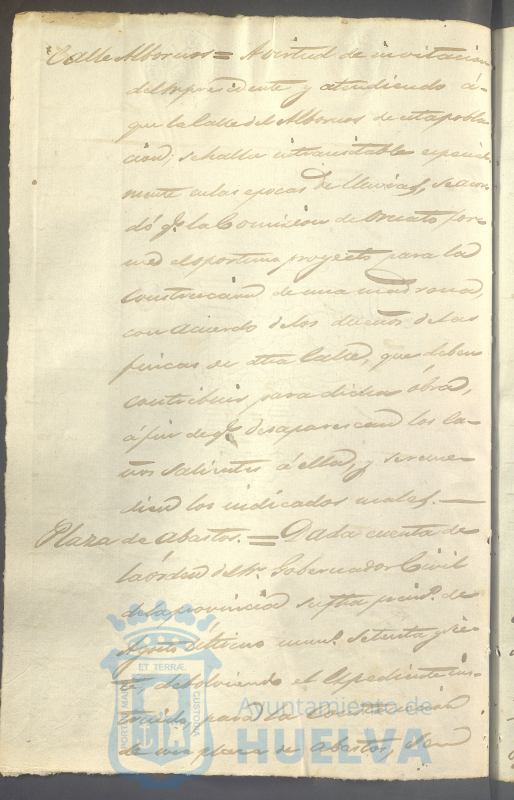 Calle Albornos = A virtud de invitacion
del Sr presidente y atendiendo á
que la Calle del Albornos de esta pobla
cion, se halla intransitable especial
mente en las epocas de lluvias, se acor
dó qe la Comision de Ornato for
me el oportuno proyecto para la
construccion de una madrona,
con acuerdo de los dueños de las
fincas de dha Calle, que deben
contribuir para dicha obra,
á fin de qe desaparescan los ca-
ños salientes á ella, y se reme-
dien los indicados males. —
Plaza de abastos. = Dada cuenta de
la órden del Sr. Gobernador Civil
de la provincia su fha
Agosto del setenta y sie
te devolviendo el Expediente ins
truido para la construccion
de una plaza de abastos, 
ET TERRÆ
PORTUS MARIS
CUSTODIA
Ayuntamiento de
HUELVA